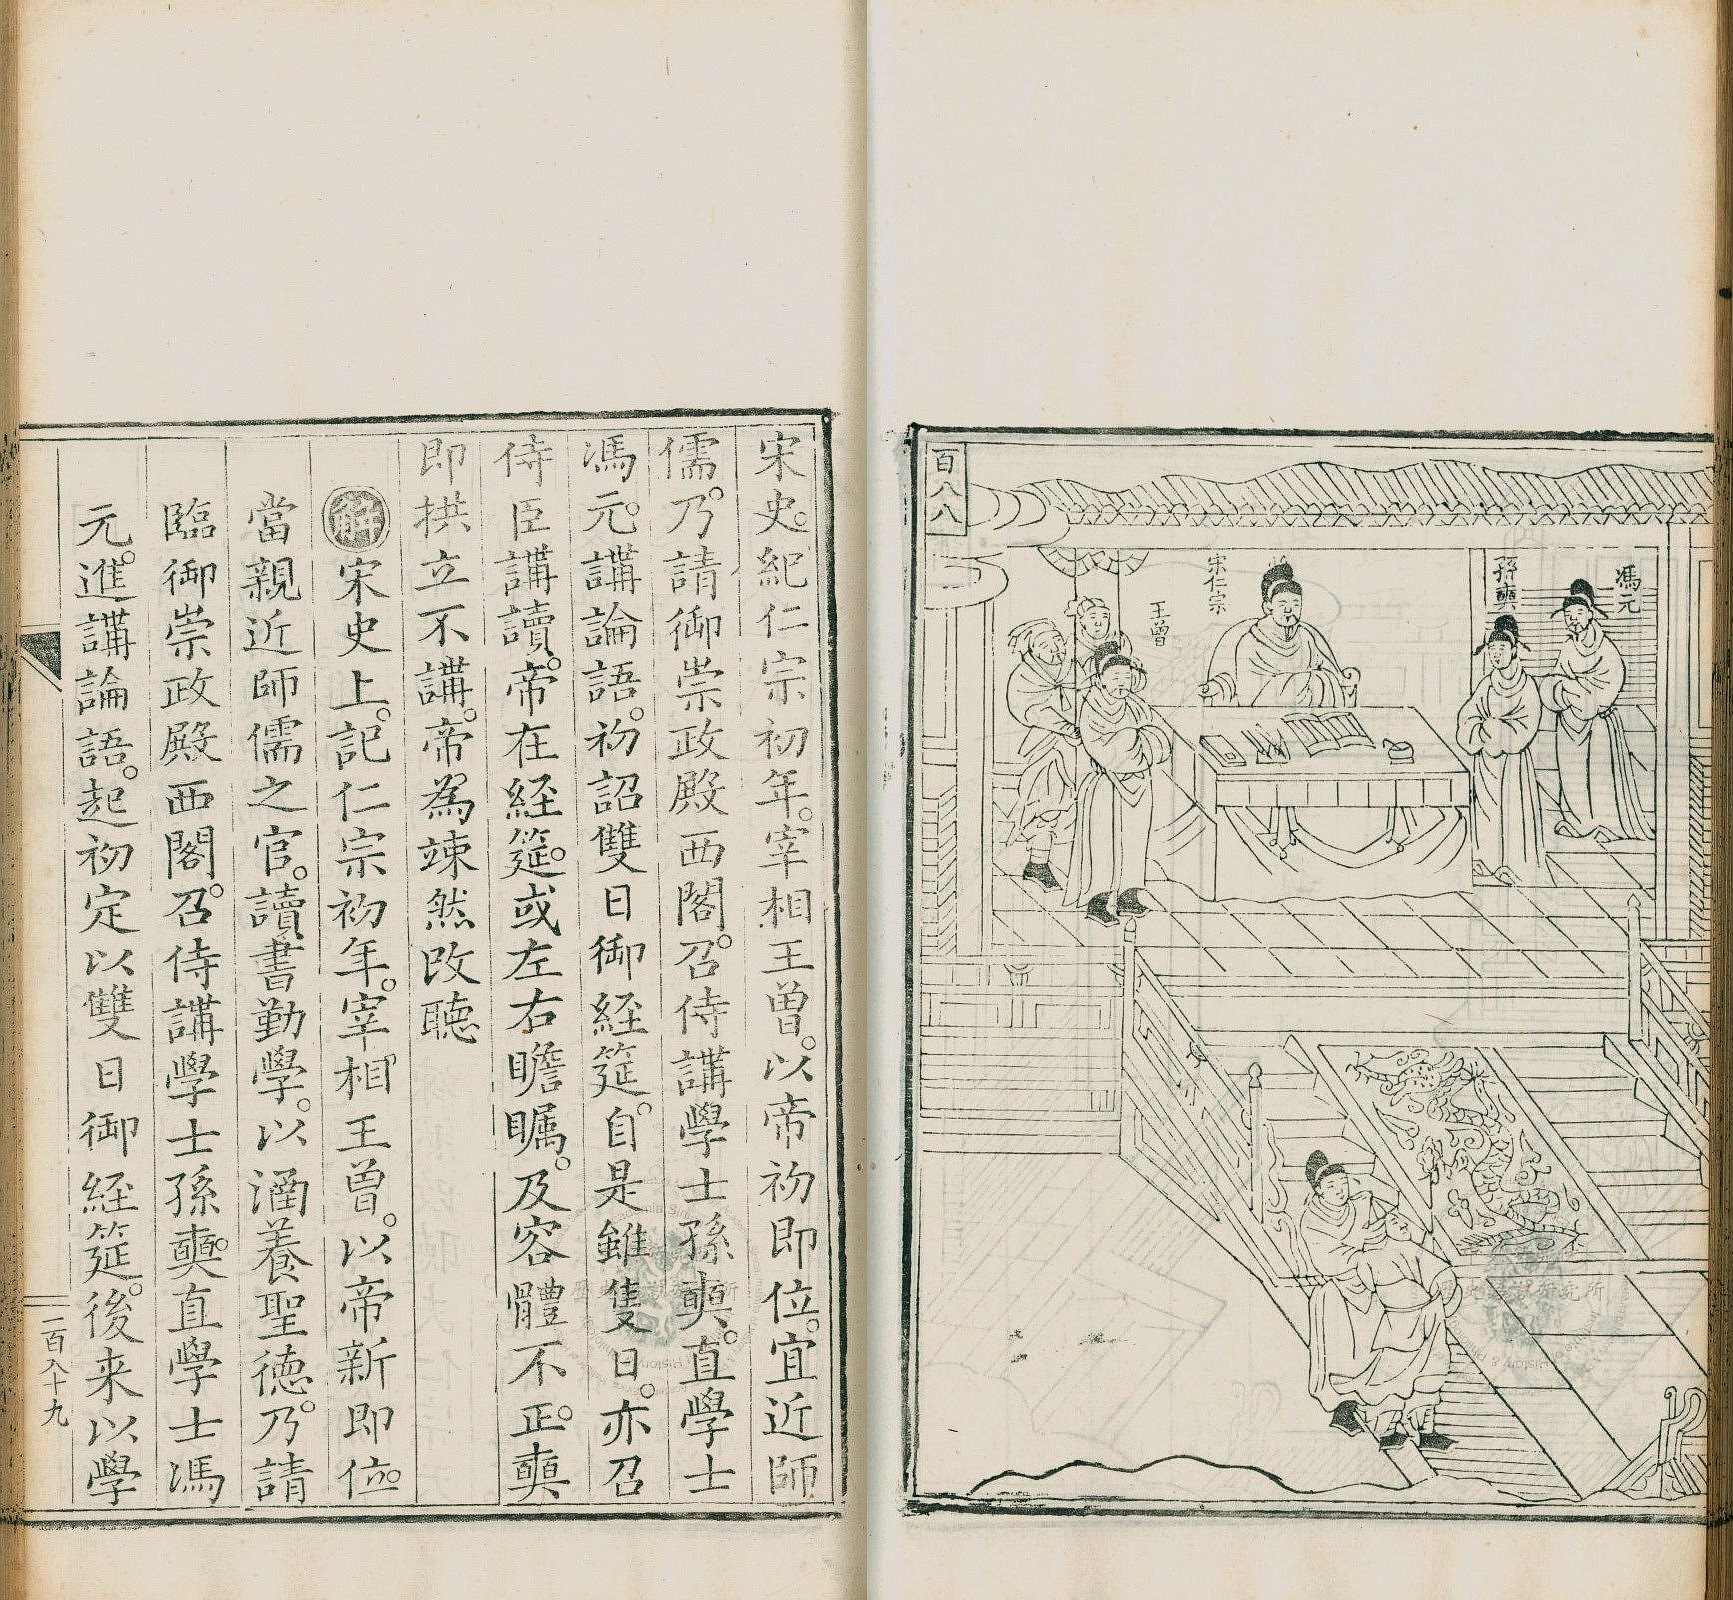 百八八
馮元
孫奭
宋仁宗
王曾
宋史。紀仁宗初年。宰相王曾。以帝初即位。宜近師
儒。乃請御崇政殿西閣。召侍講學士孫奭。直學士
馮元。講論語。初詔雙日御経筵。自是雖隻日。亦召
侍臣講讀。帝在経筵。或左右瞻矚。及容體不正。奭
即拱立不講。帝為竦然改聽
解 宋史上。記仁宗初年。宰相王曾。以帝新即位。
當親近師儒之官。讀書勤學。以涵養聖德。乃請
臨御崇政殿西閣。召侍講學士孫奭。直學士馮
元。進講論語。起初定以雙日御経筵。後来以學
一百八十九
歷史語言研究所